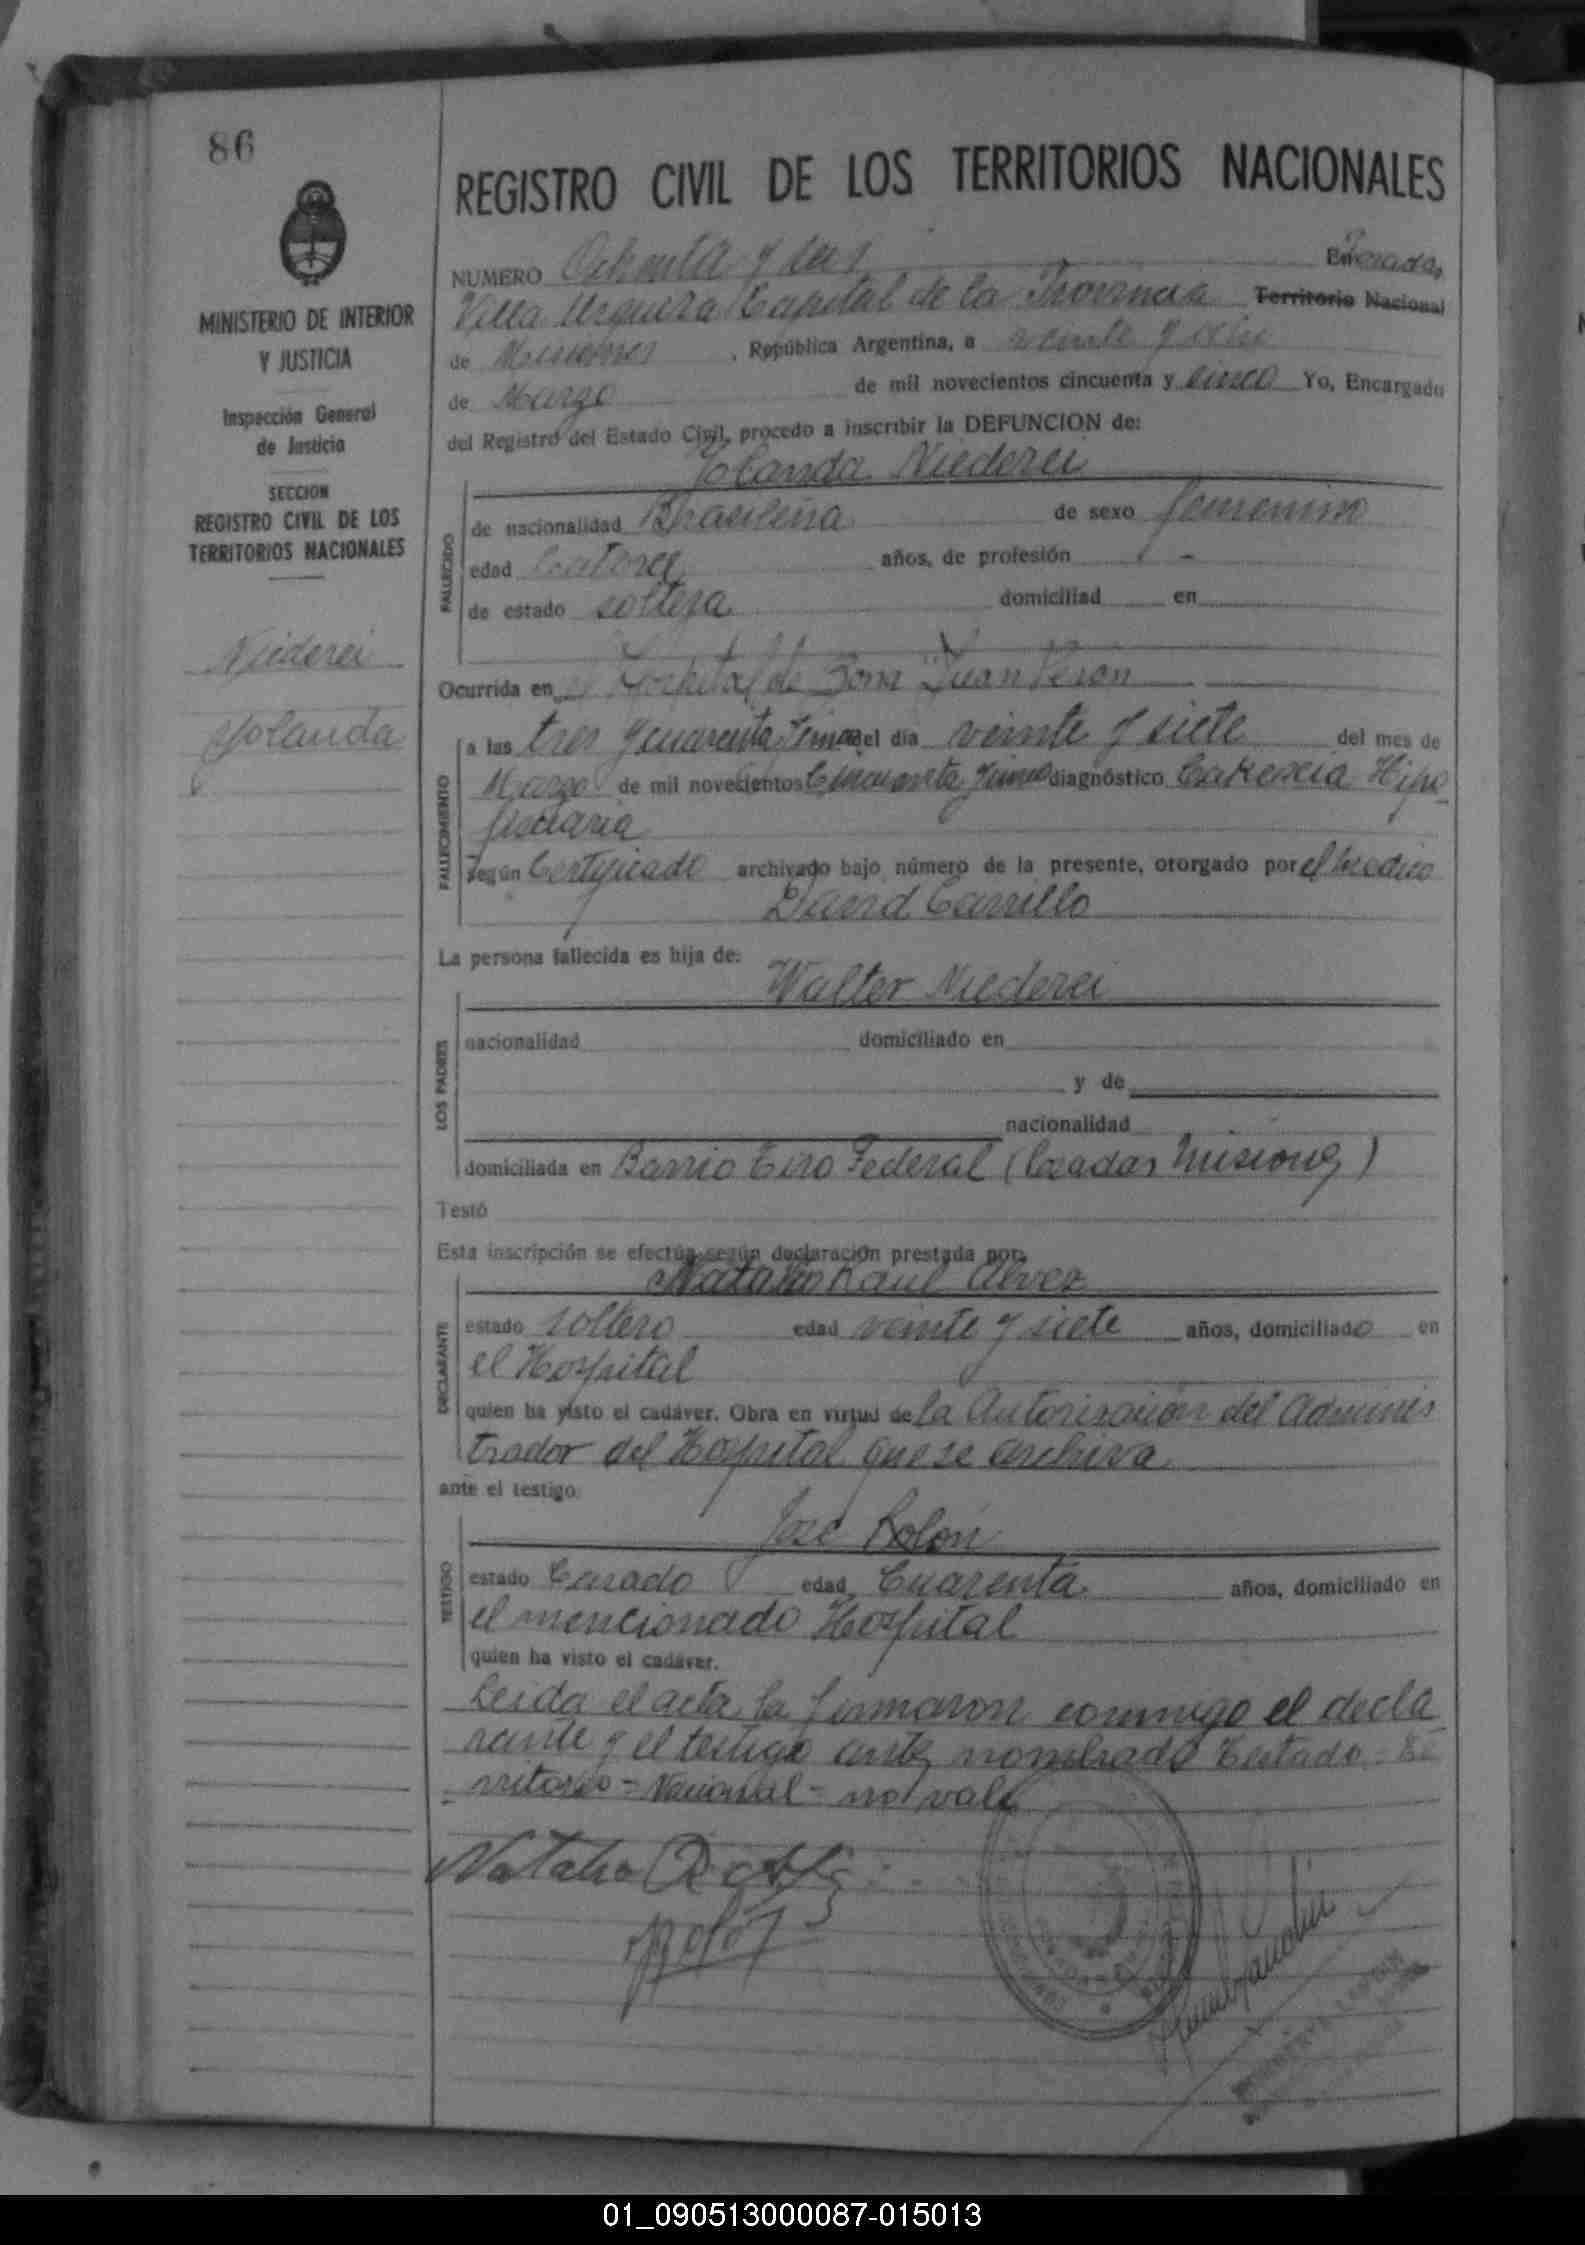 86
REGISTRO CIVIL DE LOS TERRITORIOS NACIONALES
MINISTERIO DE INTERIOR
Y JUSTICIA
Inspección General
de Justicia
SECCION
REGISTRO CIVIL DE LOS
TERRITORIOS NACIONALES
Niederei
Yolanda
NUMERO Ochenta y seis En Posadas,
Villa Urquiza Capital de la Provincia Territorio Nacional
de Misiones, República Argentina, a veinte y ocho
de Marzo de mil novecientos cincuenta y cinco Yo, Encargado
del Registro del Estado Civil, procedo a inscribir la DEFUNCION de:
Yolanda Niederei
FALLECIDO
de nacionalidad Brasileña de sexo femenino
edad Catorce años, de profesión -
de estado soltera domiciliad en
Ocurrida en el Hospital de Zona "Juan Perón
FALLECIMIENTO
a las tres y cuarenta y cinco del día veinte y siete del mes de
Marzo de mil novecientos Cincuenta y cinco diagnóstico Cakexia Hipo
fisiaria
según Certificado archivado bajo número de la presente, otorgado por el medico
David Carrillo
La persona fallecida es hija de:
Walter Niederei
LOS PADRES
nacionalidad domiciliado en
y de
nacionalidad
domiciliada en Barrio Tiro Federal (Posadas Misiones)
Testó
Esta inscripción se efectúa según declaración prestada por:
Natalio Raul Alvez
DECLARANTE
estado soltero edad veinte y siete años, domiciliado en
el Hospital
quien ha visto el cadáver. Obra en virtud de la Autorización del Adminis
trador del Hospital que se archiva
ante el testigo:
José Rolón
TESTIGO
estado Casado edad Cuarenta años, domiciliado en
el mencionado Hospital
quien ha visto el cadáver.
Leida el acta la firmaron conmigo el decla
rante y el testigo antes nombrado Testado = Te
rritorio = Nacional = no vale
Natalio R
Rolón
01_090513000087-015013